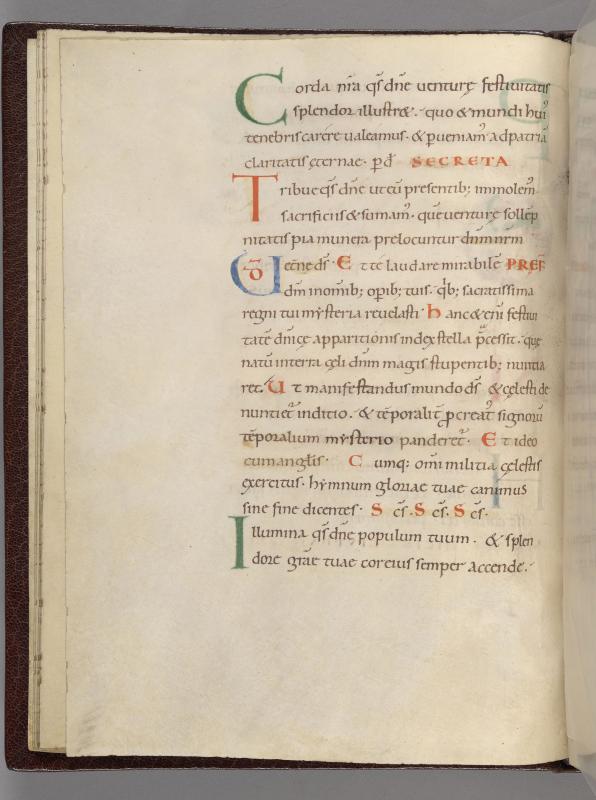 Corda nr̄a q̄s dn̄e venturę festivitatis
splendor illustr&. quo & mundi hui᾽
tenebris carere valeamus. & pveniam᾽ ad patriā
claritatis ęternae. p d̄. SECRETA
Tribue q̄s dn̄e ut eū presentib; immolem᾽
sacrificiis & sumam᾽. quę venturę sollēp
nitatis pia munera prelocuntur dnm nr̄m
VD ęterne ds̄. Et te laudare mirabilē PREF
dm̄ in omīb; opīb; tuis. q̄b; sacratissima
regni tui mysteria revelasti. hanc & enī festivi
tatē dn̄icę apparitionis index stella p̄cessit. quę
natū in terra cęli dnm magis stupentib; nuntia
ret. Ut manifestandus mundo ds̄ & cęlesti de
nuntiet᷑ inditio. & tēporalit᷑ pcreat᷑ signorū
tēporalium mysterio panderet᷑. Et ideo
cum anglis. Cumq; omi militia cęlestis
exercitus. hymnum gloriae tuae canimus
sine fine dicentes. Scs̄. Scs̄. Scs̄.
Illumina q̄s dn̄e populum tuum. & splen
dore grāe tuae cor eius semper accende.